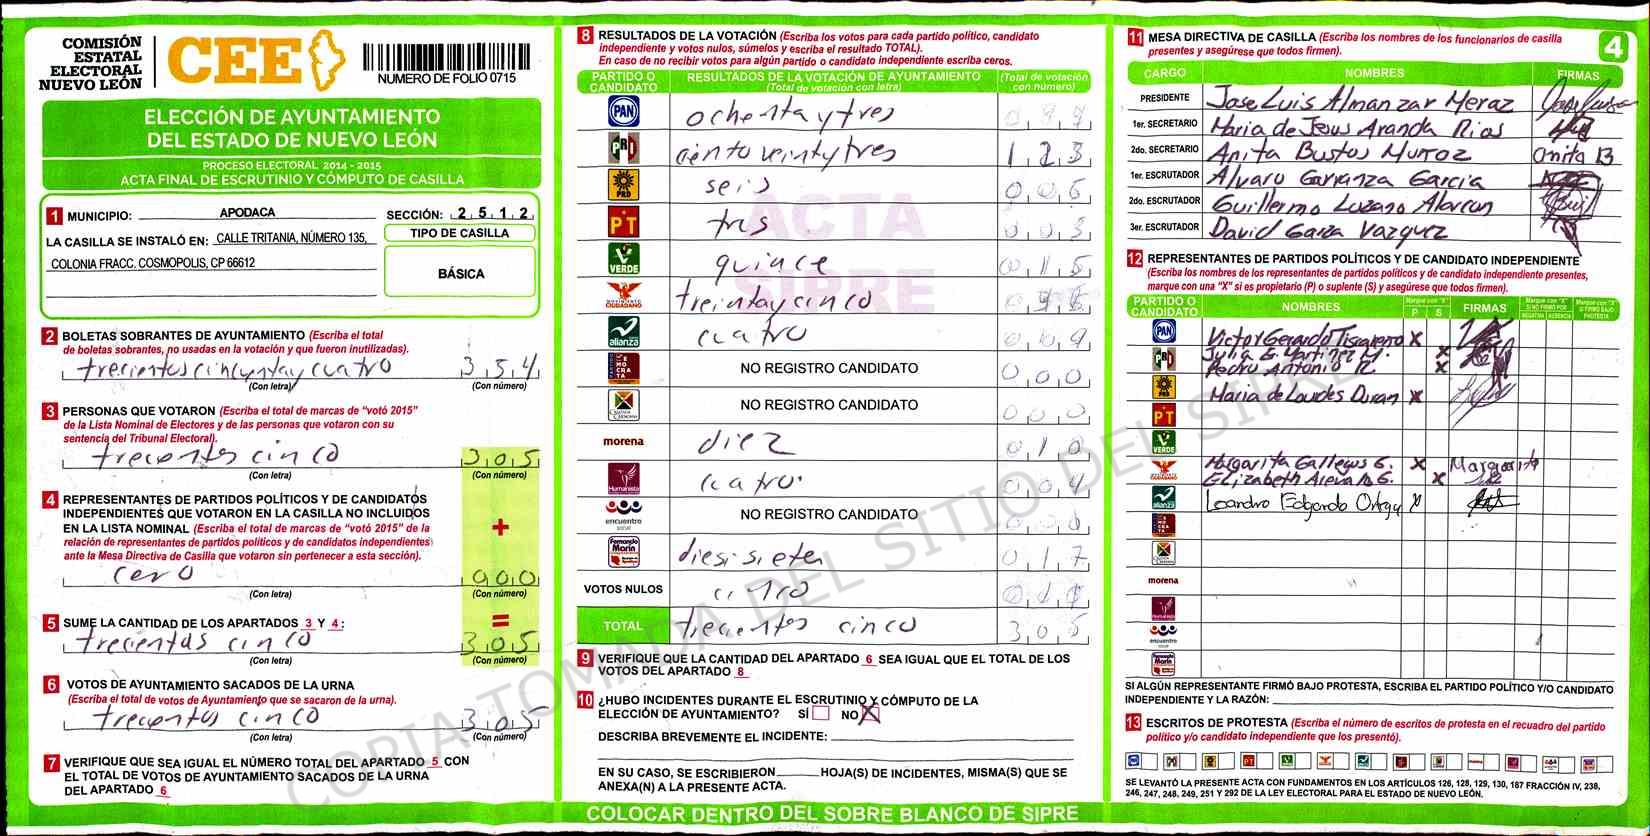 COMISIÓN
ESTATAL
ELECTORAL
NUEVO LEÓN
CEE
NUMERO DE FOLIO 0715
ELECCIÓN DE AYUNTAMIENTO
DEL ESTADO DE NUEVO LEÓN
PROCESO ELECTORAL 2014 - 2015
ACTA FINAL DE ESCRUTINIO Y CÓMPUTO DE CASILLA
1 MUNICIPIO: APODACA SECCIÓN: 2 5 1 2
LA CASILLA SE INSTALÓ EN: CALLE TRITANIA, NÚMERO 135,
COLONIA FRACC. COSMOPOLIS, CP 66612
TIPO DE CASILLA
BÁSICA
2 BOLETAS SOBRANTES DE AYUNTAMIENTO (Escriba el total
de boletas sobrantes, no usadas en la votación y que fueron inutilizadas).
trecientos cincuenta y cuatro 3 5 4
(Con letra) (Con número)
3 PERSONAS QUE VOTARON (Escriba el total de marcas de “votó 2015”
de la Lista Nominal de Electores y de las personas que votaron con su
sentencia del Tribunal Electoral).
trecientos cinco 3 0 5
(Con letra) (Con número)
4 REPRESENTANTES DE PARTIDOS POLÍTICOS Y DE CANDIDATOS
INDEPENDIENTES QUE VOTARON EN LA CASILLA NO INCLUIDOS
EN LA LISTA NOMINAL (Escriba el total de marcas de “votó 2015” de la
relación de representantes de partidos políticos y de candidatos independientes
ante la Mesa Directiva de Casilla que votaron sin pertenecer a esta sección).
+
cero 0 0 0
(Con letra) (Con número)
5 SUME LA CANTIDAD DE LOS APARTADOS 3 Y 4: =
trecientas cinco 3 0 5
(Con letra) (Con número)
6 VOTOS DE AYUNTAMIENTO SACADOS DE LA URNA
(Escriba el total de votos de Ayuntamiento que se sacaron de la urna).
trecientos cinco 3 0 5
(Con letra) (Con número)
7 VERIFIQUE QUE SEA IGUAL EL NÚMERO TOTAL DEL APARTADO 5 CON
EL TOTAL DE VOTOS DE AYUNTAMIENTO SACADOS DE LA URNA
DEL APARTADO 6
8 RESULTADOS DE LA VOTACIÓN (Escriba los votos para cada partido político, candidato
independiente y votos nulos, súmelos y escriba el resultado TOTAL).
En caso de no recibir votos para algún partido o candidato independiente escriba ceros.
PARTIDO O CANDIDATO RESULTADOS DE LA VOTACIÓN DE AYUNTAMIENTO (Total de votación con letra) (Total de votación con número)
PAN ochenta y tres
PRI ciento veinty tres 1 2 3
PRD seis 0 0 6
PT tres 0 0 3
VERDE quince 0 1 5
MOVIMIENTO CIUDADANO treinta y cinco
alianza cuatro
DEMOCRATA NO REGISTRO CANDIDATO 0 0 0
CRUZADA CIUDADANA NO REGISTRO CANDIDATO 0 0 0
morena diez 0 1 0
Humanista cuatro 0 0 4
encuentro social NO REGISTRO CANDIDATO
Fernando Marín diesisiete 0 1 7
VOTOS NULOS cinco
TOTAL trecientos cinco 3 0 5
9 VERIFIQUE QUE LA CANTIDAD DEL APARTADO 6 SEA IGUAL QUE EL TOTAL DE LOS
VOTOS DEL APARTADO 8
10 ¿HUBO INCIDENTES DURANTE EL ESCRUTINIO Y CÓMPUTO DE LA
ELECCIÓN DE AYUNTAMIENTO? SÍ NO X
DESCRIBA BREVEMENTE EL INCIDENTE:
EN SU CASO, SE ESCRIBIERON HOJA(S) DE INCIDENTES, MISMA(S) QUE SE
ANEXA(N) A LA PRESENTE ACTA.
COLOCAR DENTRO DEL SOBRE BLANCO DE SIPRE
ACTA
SIPRE
COPIA TOMADA DEL SITIO DEL SIPRE
11 MESA DIRECTIVA DE CASILLA (Escriba los nombres de los funcionarios de casilla
presentes y asegúrese que todos firmen).
4
CARGO NOMBRES FIRMAS
PRESIDENTE Jose Luis Almanzar Meraz
1er. SECRETARIO Maria de Jesus Aranda Rios
2do. SECRETARIO Anita Bustos Muñoz Anita B
1er. ESCRUTADOR Alvaro Garranza Garcia
2do. ESCRUTADOR Guillermo Lozano Alarcon
3er. ESCRUTADOR David Garza Vazquez
12 REPRESENTANTES DE PARTIDOS POLÍTICOS Y DE CANDIDATO INDEPENDIENTE
(Escriba los nombres de los representantes de partidos políticos y de candidato independiente presentes,
marque con una “X” si es propietario (P) o suplente (S) y asegúrese que todos firmen).
PARTIDO O CANDIDATO NOMBRES Marque con “X” P S FIRMAS Marque con “X” SI NO FIRMÓ POR NEGATIVA AUSENCIA Marque con “X” SI FIRMÓ BAJO PROTESTA
PAN Victor Gerardo Tiscareno X
PRI Julia G. Martinez M. X
Pedro Antonio R. X
PRD Maria de Lourdes Duran X
PT
VERDE
MOVIMIENTO CIUDADANO Margarita Gallegos G. X Margarita
Elizabeth X
alianza Leandro Edgardo Ortega X
morena
Humanista
encuentro social
Fernando Marín
SI ALGÚN REPRESENTANTE FIRMÓ BAJO PROTESTA, ESCRIBA EL PARTIDO POLÍTICO Y/O CANDIDATO
INDEPENDIENTE Y LA RAZÓN:
13 ESCRITOS DE PROTESTA (Escriba el número de escritos de protesta en el recuadro del partido
político y/o candidato independiente que los presentó).
SE LEVANTÓ LA PRESENTE ACTA CON FUNDAMENTOS EN LOS ARTÍCULOS 126, 128, 129, 130, 187 FRACCIÓN IV, 238,
246, 247, 248, 249, 251 Y 292 DE LA LEY ELECTORAL PARA EL ESTADO DE NUEVO LEÓN.